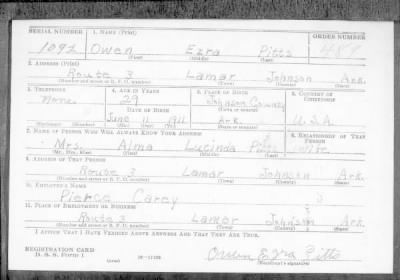 SERIAL NUMBER 1. NAME (Print) ORDER NUMBER
1092 Owen Ezra Pitts 487
(First) (Middle) (Last)
2. ADDRESS (Print)
Route 3 Lamar Johnson Ark.
(Number and street or R. F. D. number) (Town) (County) (State)
3. TELEPHONE 4. AGE IN YEARS 5. PLACE OF BIRTH 6. COUNTRY OF CITIZENSHIP
None 29 Johnson County
DATE OF BIRTH (Town or county)
June 11 1911 Ark. U.S.A.
(Exchange) (Number) (Mo.) (Day) (Yr.) (State or country)
7. NAME OF PERSON WHO WILL ALWAYS KNOW YOUR ADDRESS 8. RELATIONSHIP OF THAT PERSON
Mrs. Alma Lucinda Pitts Wife
(Mr., Mrs., Miss) (First) (Middle) (Last)
9. ADDRESS OF THAT PERSON
Route 3 Lamar Johnson Ark.
(Number and street or R. F. D. number) (Town) (County) (State)
10. EMPLOYER'S NAME
Pierce Carey
11. PLACE OF EMPLOYMENT OR BUSINESS
Route 3 Lamar Johnson Ark.
(Number and street or R. F. D. number) (Town) (County) (State)
I AFFIRM THAT I HAVE VERIFIED ABOVE ANSWERS AND THAT THEY ARE TRUE.
REGISTRATION CARD
D. S. S. Form 1 (over) 16—17105 Owen Ezra Pitts
(Registrant's signature)